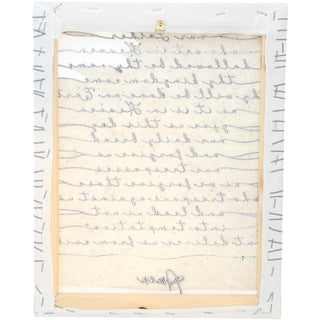 our Father
who art in Heaven
hallowed be thy name
thy kingdom come
thy will be done on Earth
as it is in Heaven
give us this day
our daily bread
and forgive us our
trespasses
as we forgive those
who trespass against us
and lead us not
into temptation
but deliver us from evil
Amen